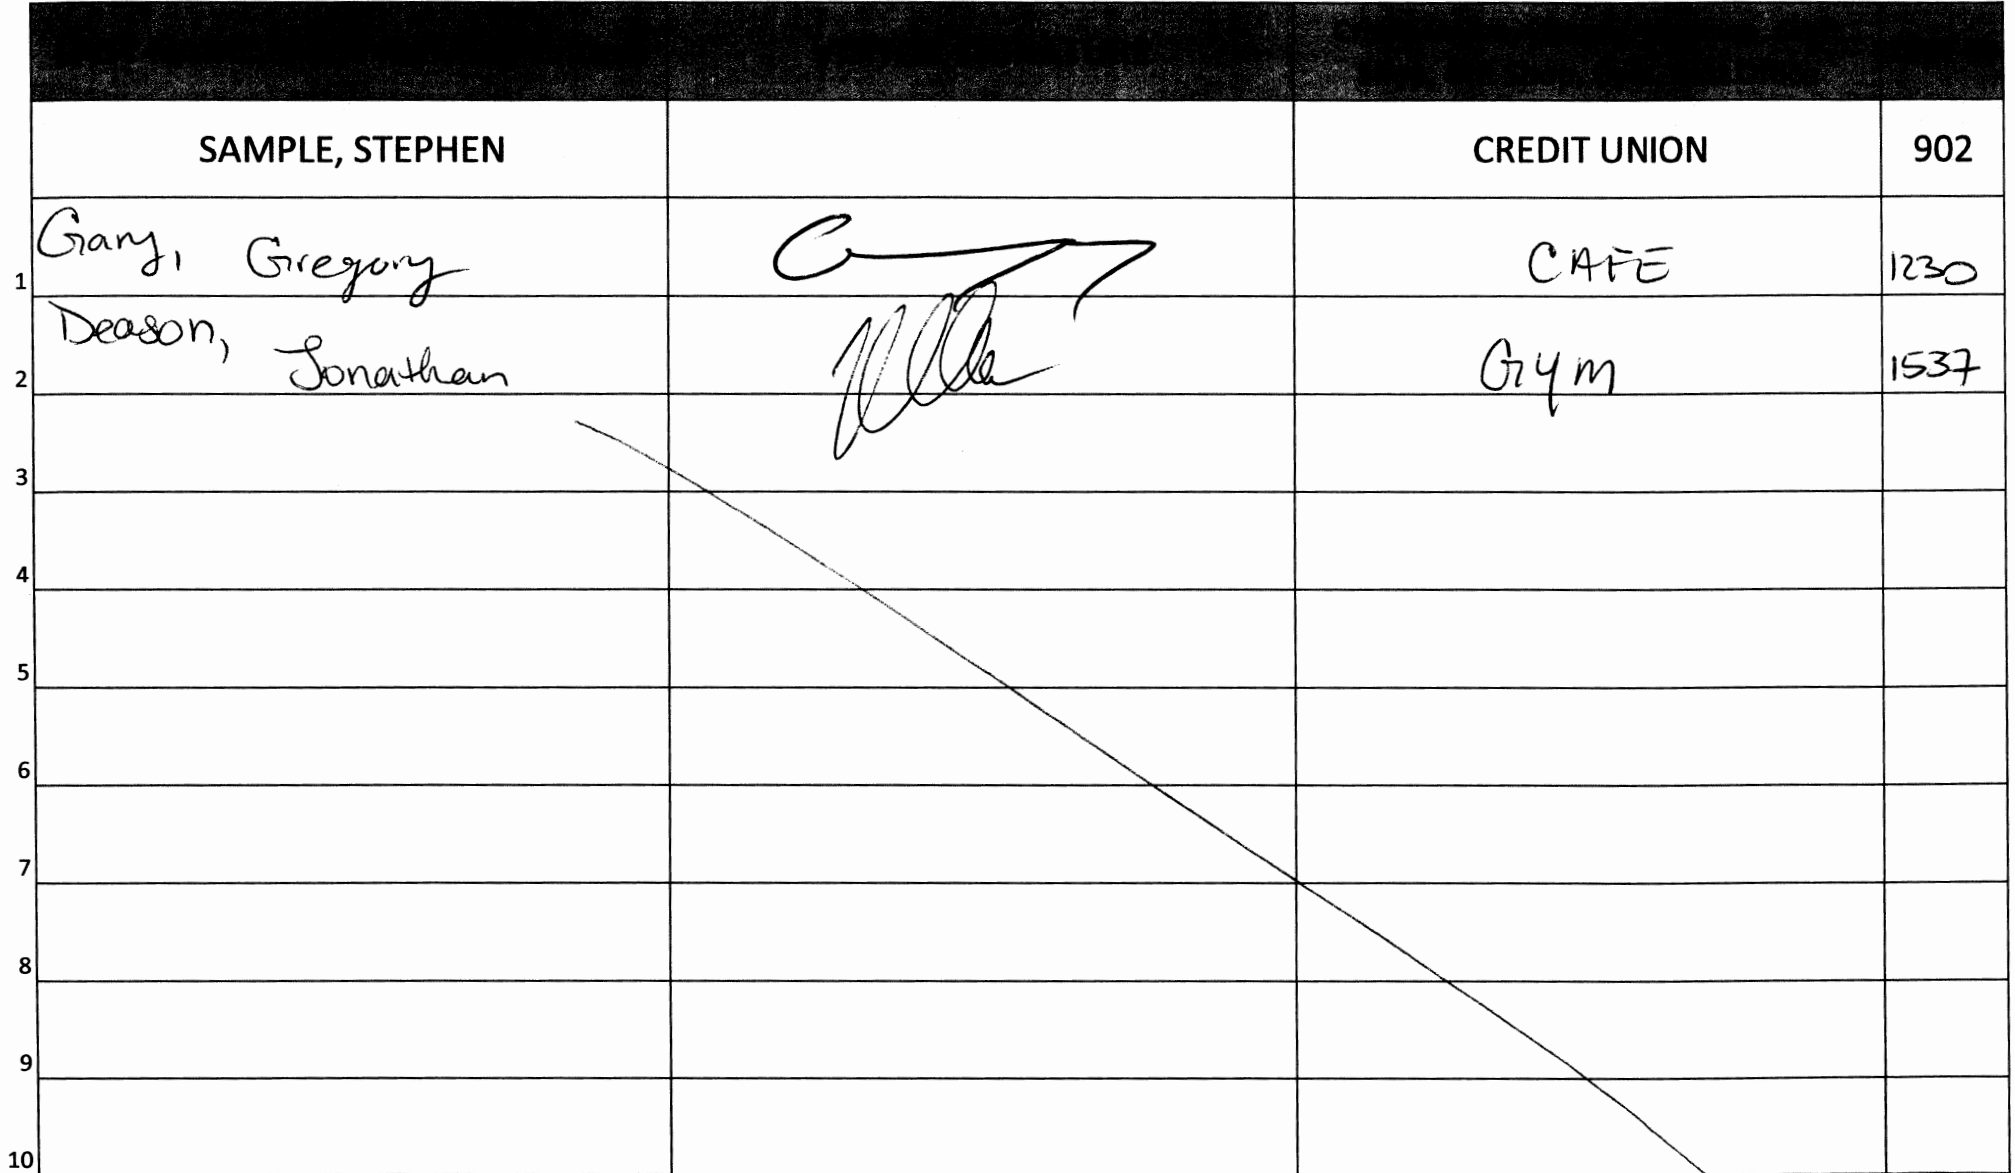 SAMPLE, STEPHEN CREDIT UNION 902
1 Gary, Gregory CAFE 1230
2 Deason, Jonathan Gym 1537
3
4
5
6
7
8
9
10